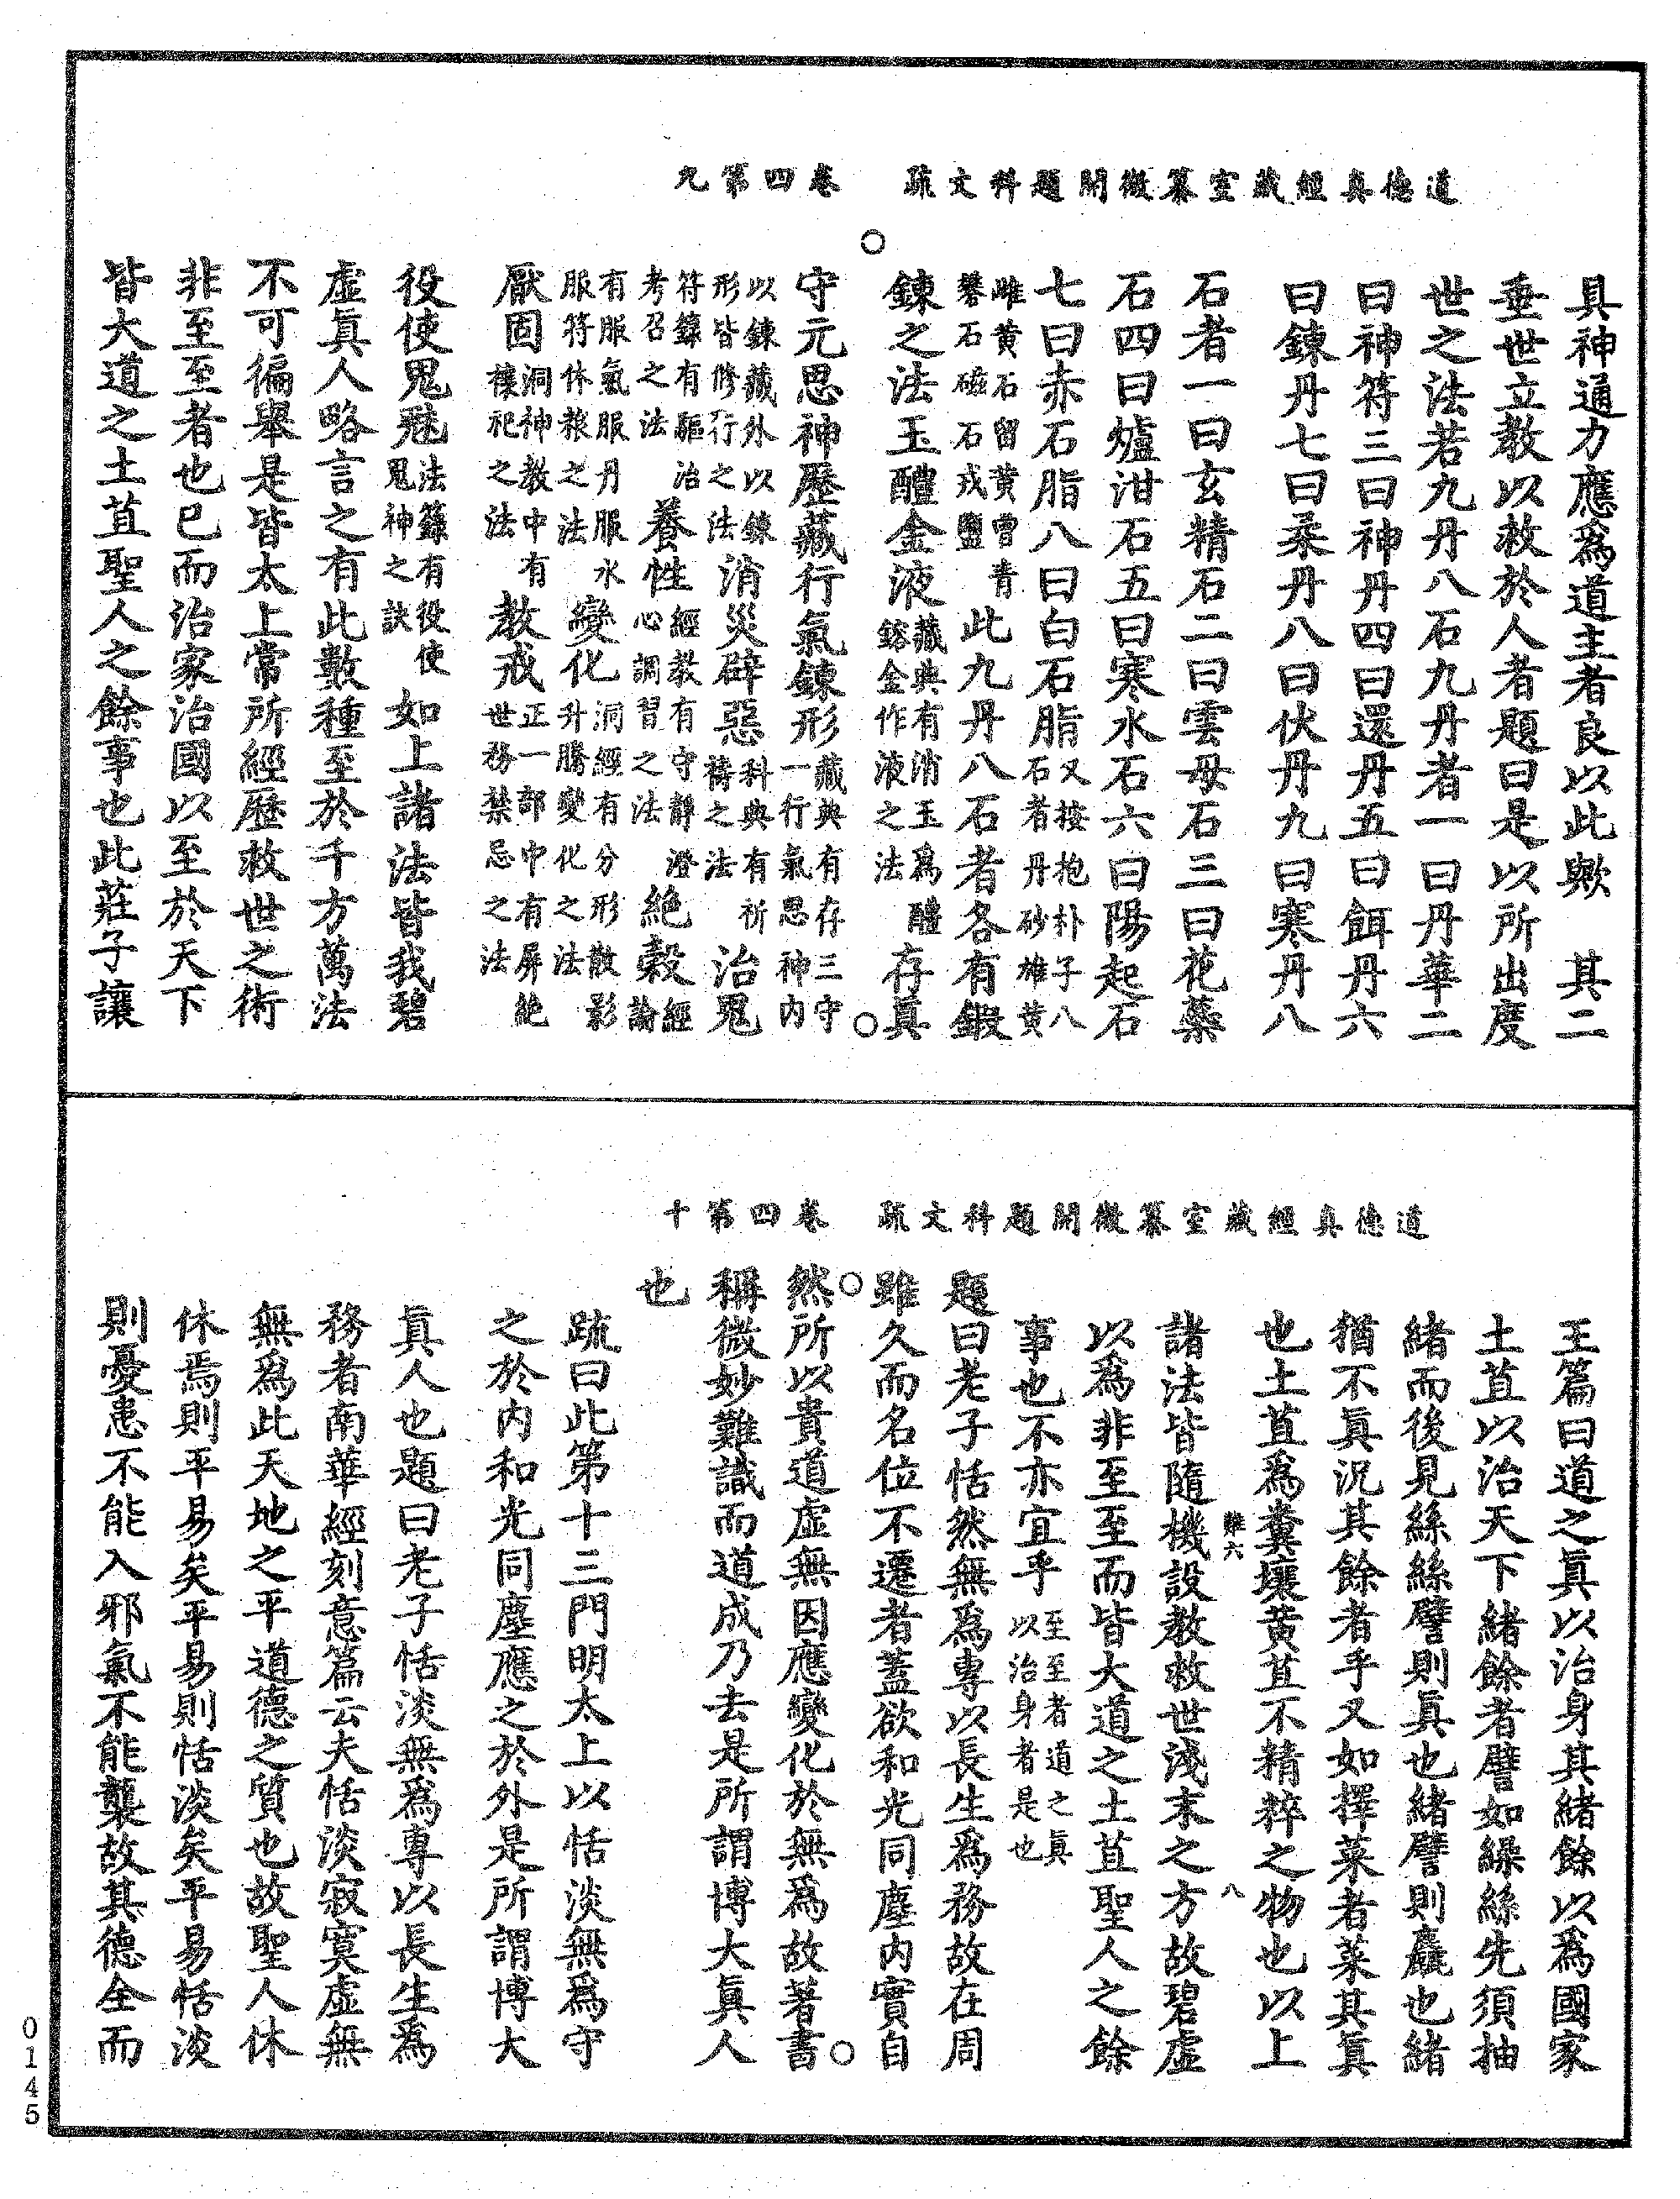 道德眞經藏室纂微開題科文疏　卷四第九
具神通力應爲道主者良以此歟　其二
垂世立教以救於人者題曰是以所出度
世之法若九丹八石九丹者一曰丹華二
曰神符三曰神丹四曰還丹五曰餌丹六
曰鍊丹七曰柔丹八曰伏丹九曰寒丹八
石者一曰玄精石二曰雲母石三曰花藥
石四曰爐泔石五曰寒水石六曰陽起石
七曰赤石脂八曰白石脂又按抱朴子八石者丹砂雄黄
雌黄石留黄曾青礬石磁石戎鹽此九丹八石者各有鍛
鍊之法玉醴金液藏典有消玉爲醴鎔金作液之法存眞
守元思神歷藏行氣鍊形藏典有存三守一行氣思神内
以鍊藏外以鍊形皆修行之法消災辟惡科典有祈禱之法治鬼
符籙有驅治考召之法養性經教有守靜澄心調習之法絶穀經論
有服氣服丹服水服符休粮之法變化洞經有分形散影升騰變化之法
厭固洞神教中有禳祀之法教戒正一部中有屏絶世務禁忌之法
役使鬼魅法籙有役使鬼神之訣如上諸法皆我碧
虛眞人略言之有此數種至於千方萬法
不可徧舉是皆太上常所經歷救世之術
非至至者也已而治家治國以至於天下
皆大道之土苴聖人之餘事也此莊子讓
道德眞經藏室纂微開題科文疏　卷四第十
王篇曰道之眞以治身其緒餘以爲國家
土苴以治天下緒餘者譬如繰絲先須抽
緒而後見絲絲譬則眞也緒譬則麤也緒
猶不眞況其餘者乎又如擇菜者菜其眞
也土苴爲糞壤黄苴不精粹之物也以上
難六　八
諸法皆隨機設教救世淺末之方故碧虛
以爲非至至而皆大道之土苴聖人之餘
事也不亦宜乎至至者道之眞以治身者是也
題曰老子恬然無爲專以長生爲務故在周
雖久而名位不遷者蓋欲和光同塵内實自
然所以貴道虛無因應變化於無爲故著書
稱微妙難識而道成乃去是所謂博大眞人
也
疏曰此第十三門明太上以恬淡無爲守
之於内和光同塵應之於外是所謂博大
眞人也題曰老子恬淡無爲專以長生爲
務者南華經刻意篇云夫恬淡寂寞虛無
無爲此天地之平道德之質也故聖人休
休焉則平易矣平易則恬淡矣平易恬淡
則憂患不能入邪氣不能襲故其德全而
0145